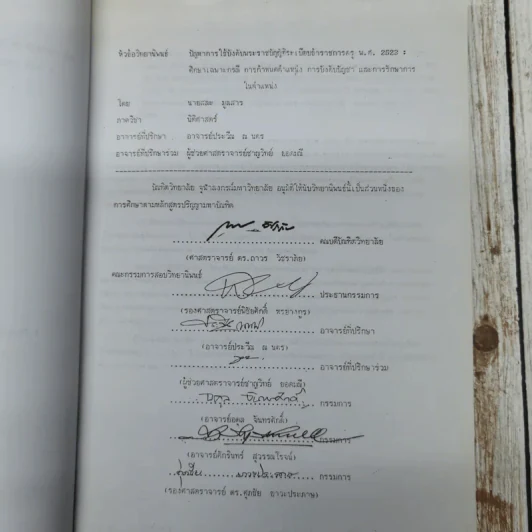 หัวข้อวิทยานิพนธ์ ปัญหาการใช้บังคับพระราชบัญญัติระเบียบข้าราชการครู พ.ศ. 2523 :
ศึกษาเฉพาะกรณี การกำหนดตำแหน่ง การบังคับบัญชา และการรักษาการ
ในตำแหน่ง
โดย นายสละ มูลสาร
ภาควิชา นิติศาสตร์
อาจารย์ที่ปรึกษา อาจารย์ประวีณ ณ นคร
อาจารย์ที่ปรึกษาร่วม ผู้ช่วยศาสตราจารย์ชาญวิทย์ ยอดมณี
บัณฑิตวิทยาลัย จุฬาลงกรณ์มหาวิทยาลัย อนุมัติให้นับวิทยานิพนธ์นี้เป็นส่วนหนึ่งของ
การศึกษาตามหลักสูตรปริญญามหาบัณฑิต
คณบดีบัณฑิตวิทยาลัย
(ศาสตราจารย์ ดร.ถาวร วัชราภัย)
คณะกรรมการสอบวิทยานิพนธ์
ประธานกรรมการ
(รองศาสตราจารย์พิชัยศักดิ์ หรยางกูร)
อาจารย์ที่ปรึกษา
(อาจารย์ประวีณ ณ นคร)
อาจารย์ที่ปรึกษาร่วม
(ผู้ช่วยศาสตราจารย์ชาญวิทย์ ยอดมณี)
กรรมการ
(อาจารย์อุดล จันทรศักดิ์)
กรรมการ
(อาจารย์ศักรินทร์ สุวรรณโรจน์)
กรรมการ
(รองศาสตราจารย์ ดร.ศุภชัย ยาวะประภาษ)